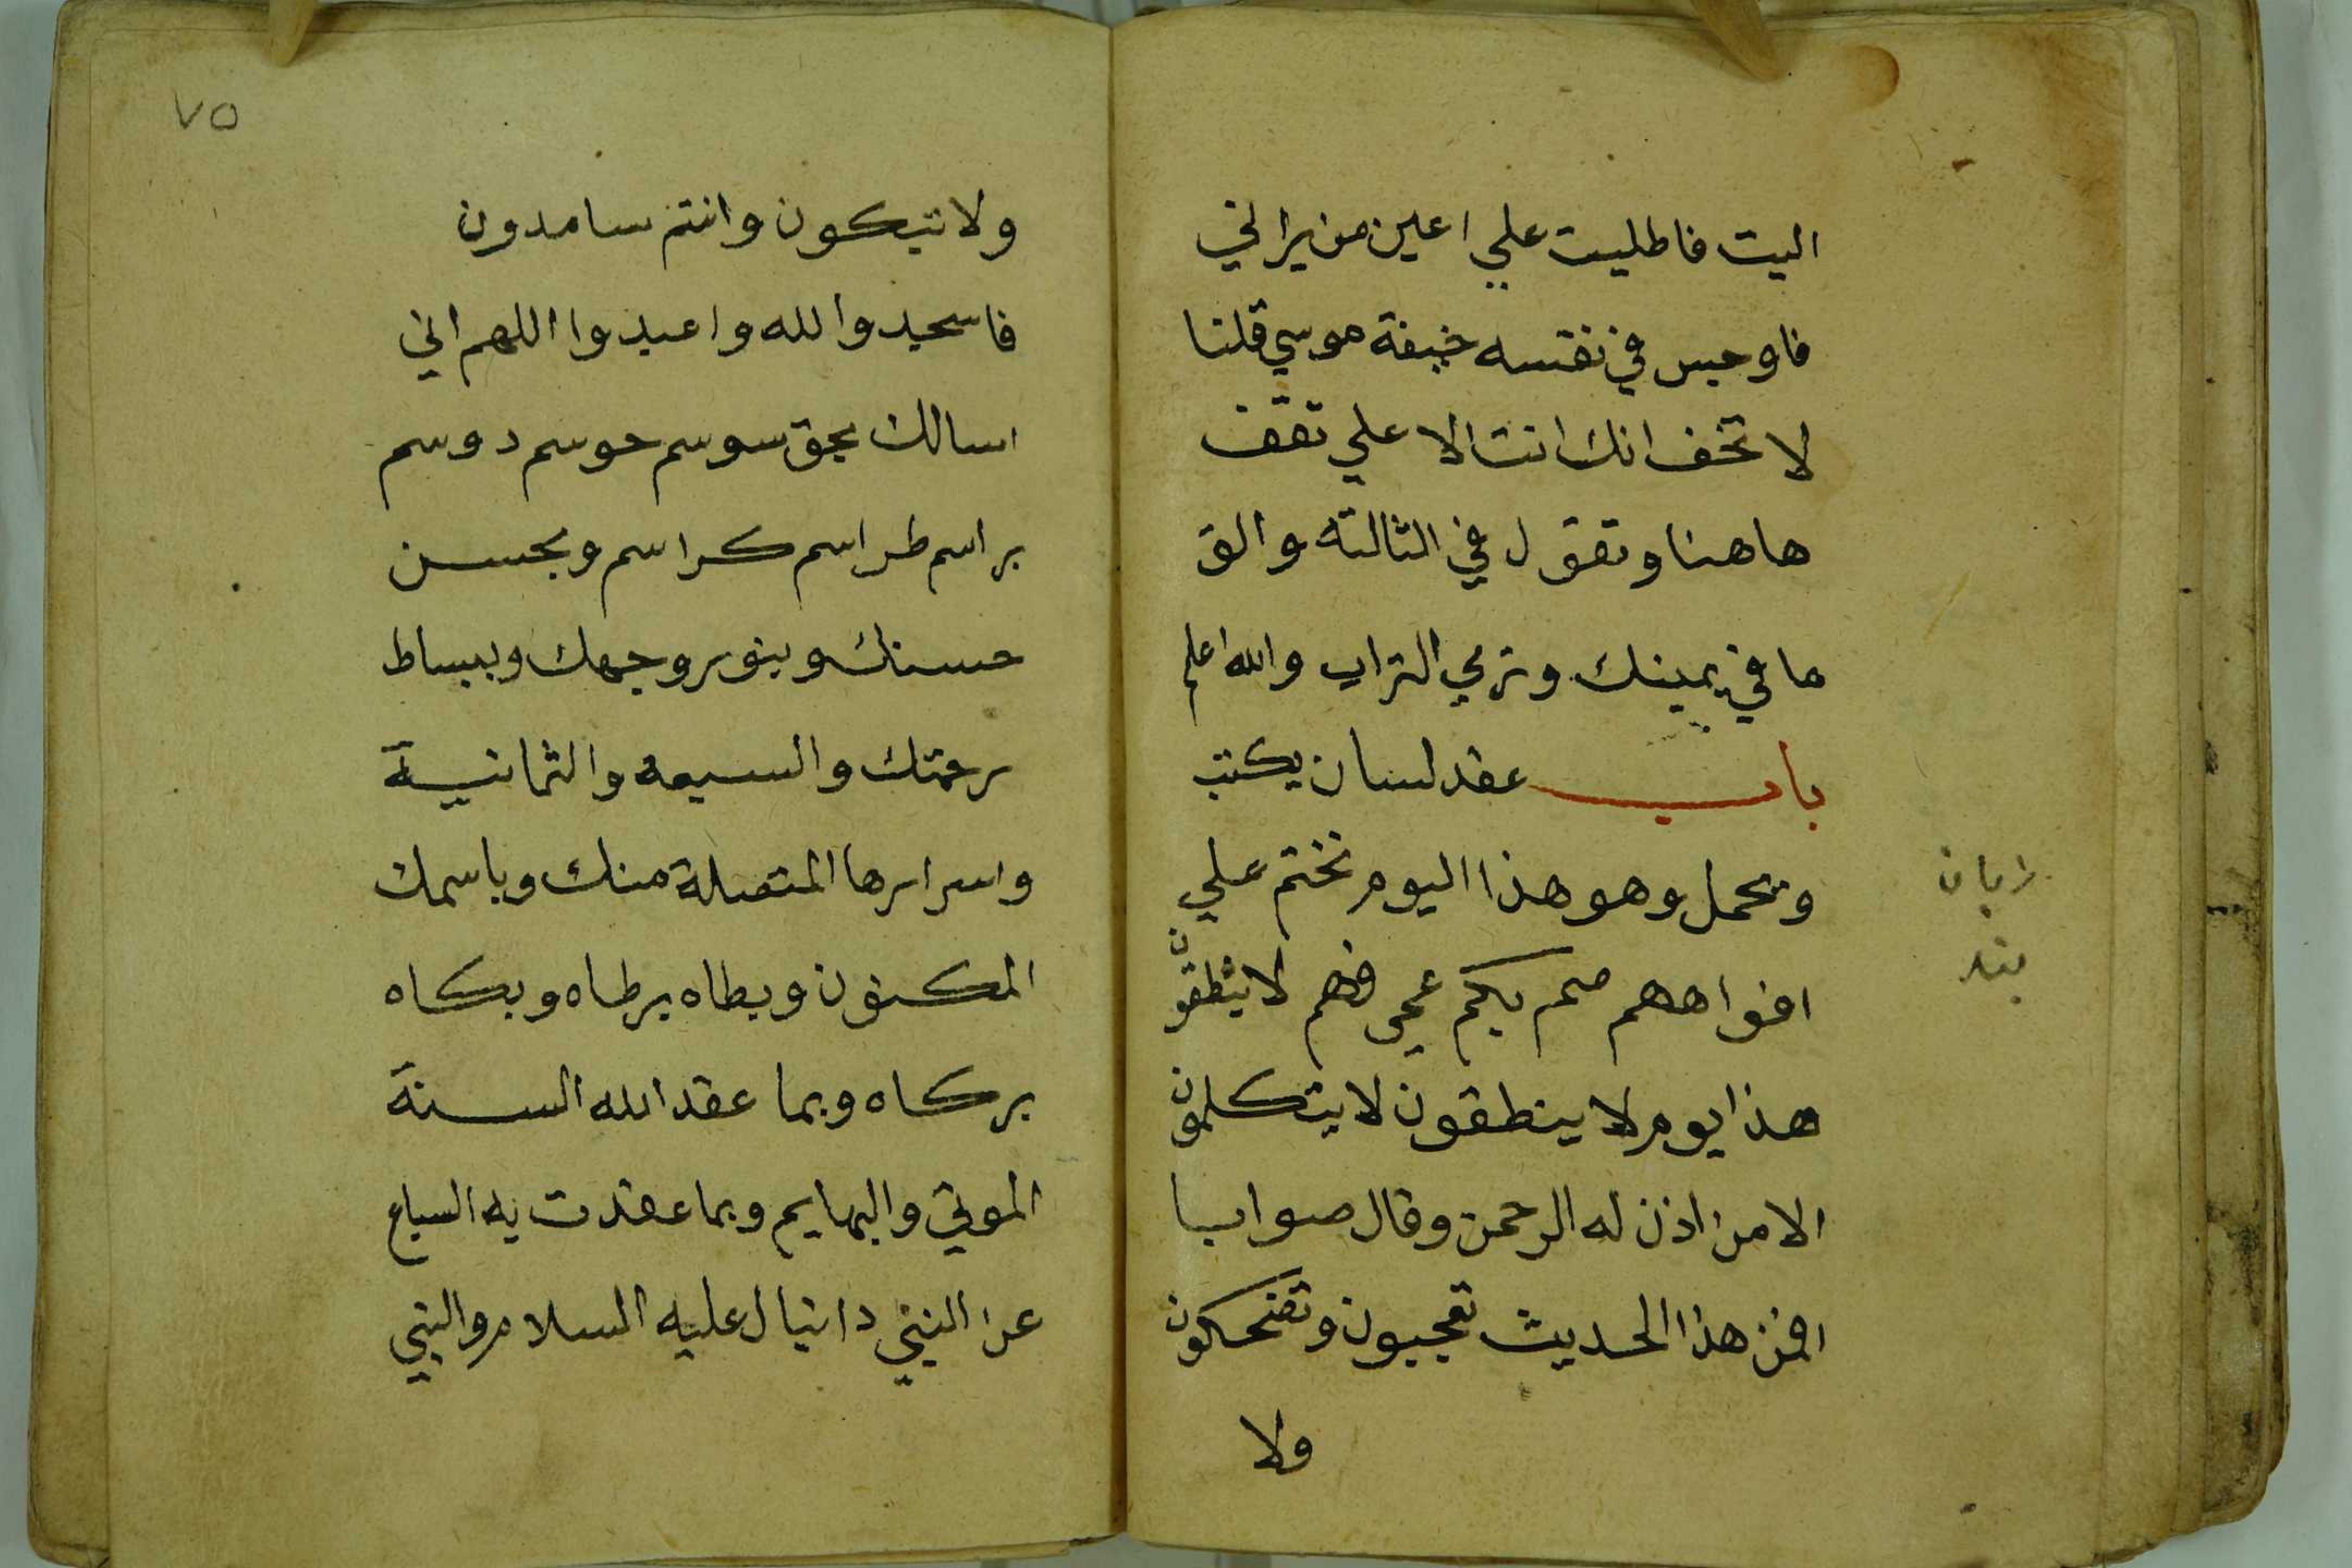 البت فاطلیت علي اعين من يراني
فاوجس في نفسه خيفة موسي قلنا
لا تخف انك انت الاعلي تقف
هاهنا وتقول في الثالثه والق
ما في يمينك وترمي التراب والله اعلم
باب عقد لسان يكتب
ويحمل وهو هذا اليوم نختم علي
افواههم صم بكم عمي فهم لا ينطقون
هذا يوم لا ينطقون لا يتكلمون
الا من اذن له الرحمن وقال صوابا
افمن هذا الحديث تعجبون وتضحكون
ولا
بند
٧٥
ولا تبكون وانتم سامدون
فاسجدوا لله واعبدوا اللهم اني
اسالك بحق سوسم حوسم دوسم
براسم طراسم كراسم وبحسن
حسنك وبنور وجهك وببساط
رحمتك والسبعه والثمانية
واسرارها المتصلة منك وباسمك
المكنون وبطاه برطاه وبكاه
بركاه وبما عقد الله السنة
الموتي والبهايم وبما عقدت به السباع
عن النبي دانيال عليه السلام والنبي